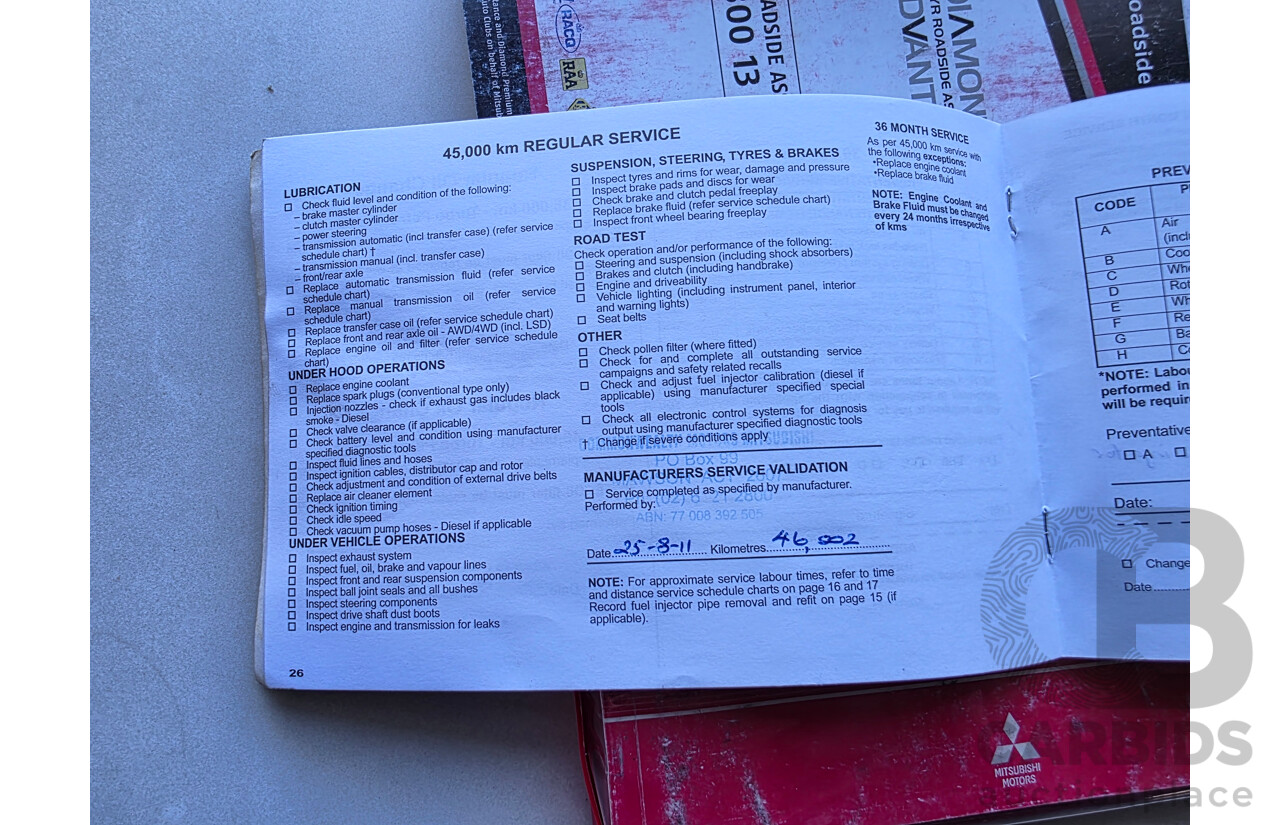 RACQ
RAA
tance and Diamond Premium
uto Clubs on behalf of Mitsub
ADSIDE AS
300 13
DIAMON
YR ROADSIDE AS
DVANT
oadside
45,000 km REGULAR SERVICE
LUBRICATION
Check fluid level and condition of the following:
– brake master cylinder
– clutch master cylinder
– power steering
– transmission automatic (incl transfer case) (refer service
schedule chart) †
– transmission manual (incl. transfer case)
– front/rear axle
Replace automatic transmission fluid (refer service
schedule chart)
Replace manual transmission oil (refer service
schedule chart)
Replace transfer case oil (refer service schedule chart)
Replace front and rear axle oil - AWD/4WD (incl. LSD)
Replace engine oil and filter (refer service schedule
chart)
UNDER HOOD OPERATIONS
Replace engine coolant
Replace spark plugs (conventional type only)
Injection nozzles - check if exhaust gas includes black
smoke - Diesel
Check valve clearance (if applicable)
Check battery level and condition using manufacturer
specified diagnostic tools
Inspect fluid lines and hoses
Inspect ignition cables, distributor cap and rotor
Check adjustment and condition of external drive belts
Replace air cleaner element
Check ignition timing
Check idle speed
Check vacuum pump hoses - Diesel if applicable
UNDER VEHICLE OPERATIONS
Inspect exhaust system
Inspect fuel, oil, brake and vapour lines
Inspect front and rear suspension components
Inspect ball joint seals and all bushes
Inspect steering components
Inspect drive shaft dust boots
Inspect engine and transmission for leaks
26
SUSPENSION, STEERING, TYRES & BRAKES
Inspect tyres and rims for wear, damage and pressure
Inspect brake pads and discs for wear
Check brake and clutch pedal freeplay
Replace brake fluid (refer service schedule chart)
Inspect front wheel bearing freeplay
ROAD TEST
Check operation and/or performance of the following:
Steering and suspension (including shock absorbers)
Brakes and clutch (including handbrake)
Engine and driveability
Vehicle lighting (including instrument panel, interior
and warning lights)
Seat belts
OTHER
Check pollen filter (where fitted)
Check for and complete all outstanding service
campaigns and safety related recalls
Check and adjust fuel injector calibration (diesel if
applicable) using manufacturer specified special
tools
Check all electronic control systems for diagnosis
output using manufacturer specified diagnostic tools
† Change if severe conditions apply
MITSUBISHI
PO Box 99
MANUFACTURERS SERVICE VALIDATION
ACT 2607
Service completed as specified by manufacturer.
Performed by:
ABN: 77 008 392 505
Date 25-8-11 Kilometres 46,002
NOTE: For approximate service labour times, refer to time
and distance service schedule charts on page 16 and 17
Record fuel injector pipe removal and refit on page 15 (if
applicable).
36 MONTH SERVICE
As per 45,000 km service with
the following exceptions:
•Replace engine coolant
•Replace brake fluid
NOTE: Engine Coolant and
Brake Fluid must be changed
every 24 months irrespective
of kms
PREV
CODE
A Air
(incl
B Coo
C Whe
D Rot
E Wh
F Re
G Ba
H Co
*NOTE: Labou
performed in
will be requir
Preventative
A
Date:
Change
Date
MITSUBISHI
MOTORS
CB
CARBIDS
auctionplace